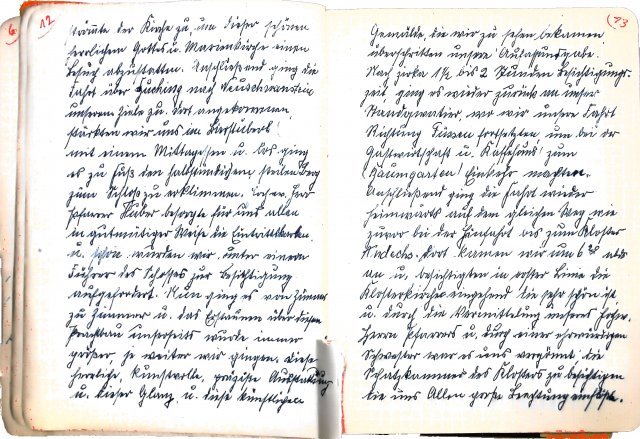 12.
strömte der Kirche zu, um dieser schönen
herrlichen Gottes u. Marienkirche einen
Besuch abzustatten. Anschließend ging die
Fahrt über nach Neuschwanstein
unserem Ziele zu. Dort angekommen
stärkten wir uns im
mit einem Mittagessen u. los ging
es zu Fuß den halbstündigen steilen Berg
zum Schloß zu erklimmen. Herr
Pfarrer Huber besorgte für uns allen
in gutmütiger Weise die Eintrittskarten
u. schon wurden wir unter einem
Führer des Schloßes zur Besichtigung
aufgefordert. Nun ging es von Zimmer
zu Zimmer u. das Erstaunen über diesen
Prachtbau unserseits wurde immer
größer je weiter wir gingen. Diese
herrliche, kunstvolle, präzise Ausstattung
u. dieser Glanz u. diese künstlichen
13
Gemälde, die wir zu sehen bekamen
überschritten unsere
Nach zirka 1½ bis 2 Stunden Besichtigungs-
zeit ging es wieder zurück an unser
Standquartier, wo wir unsere Fahrt
Richtung Füssen fortsetzten, um bei der
Gastwirtschaft u. zum
(Baumgarten) Einkehr machten.
Anschließend ging die Fahrt wieder
heimwärts auf dem gleichen Weg wie
zuvor bei der Hinfahrt bis zum Kloster
Andechs. Dort kamen wir um 6
an u. besichtigten in erster Linie die
Klosterkirche eingehend die sehr schön ist
u. durch die Vermittlung unseres Hochw.
Herrn Pfarrers u. durch einer ehrwürdigen
Schwester war es uns vergönnt die
Schatzkammer des Klosters zu besichtigen
die uns Allen große